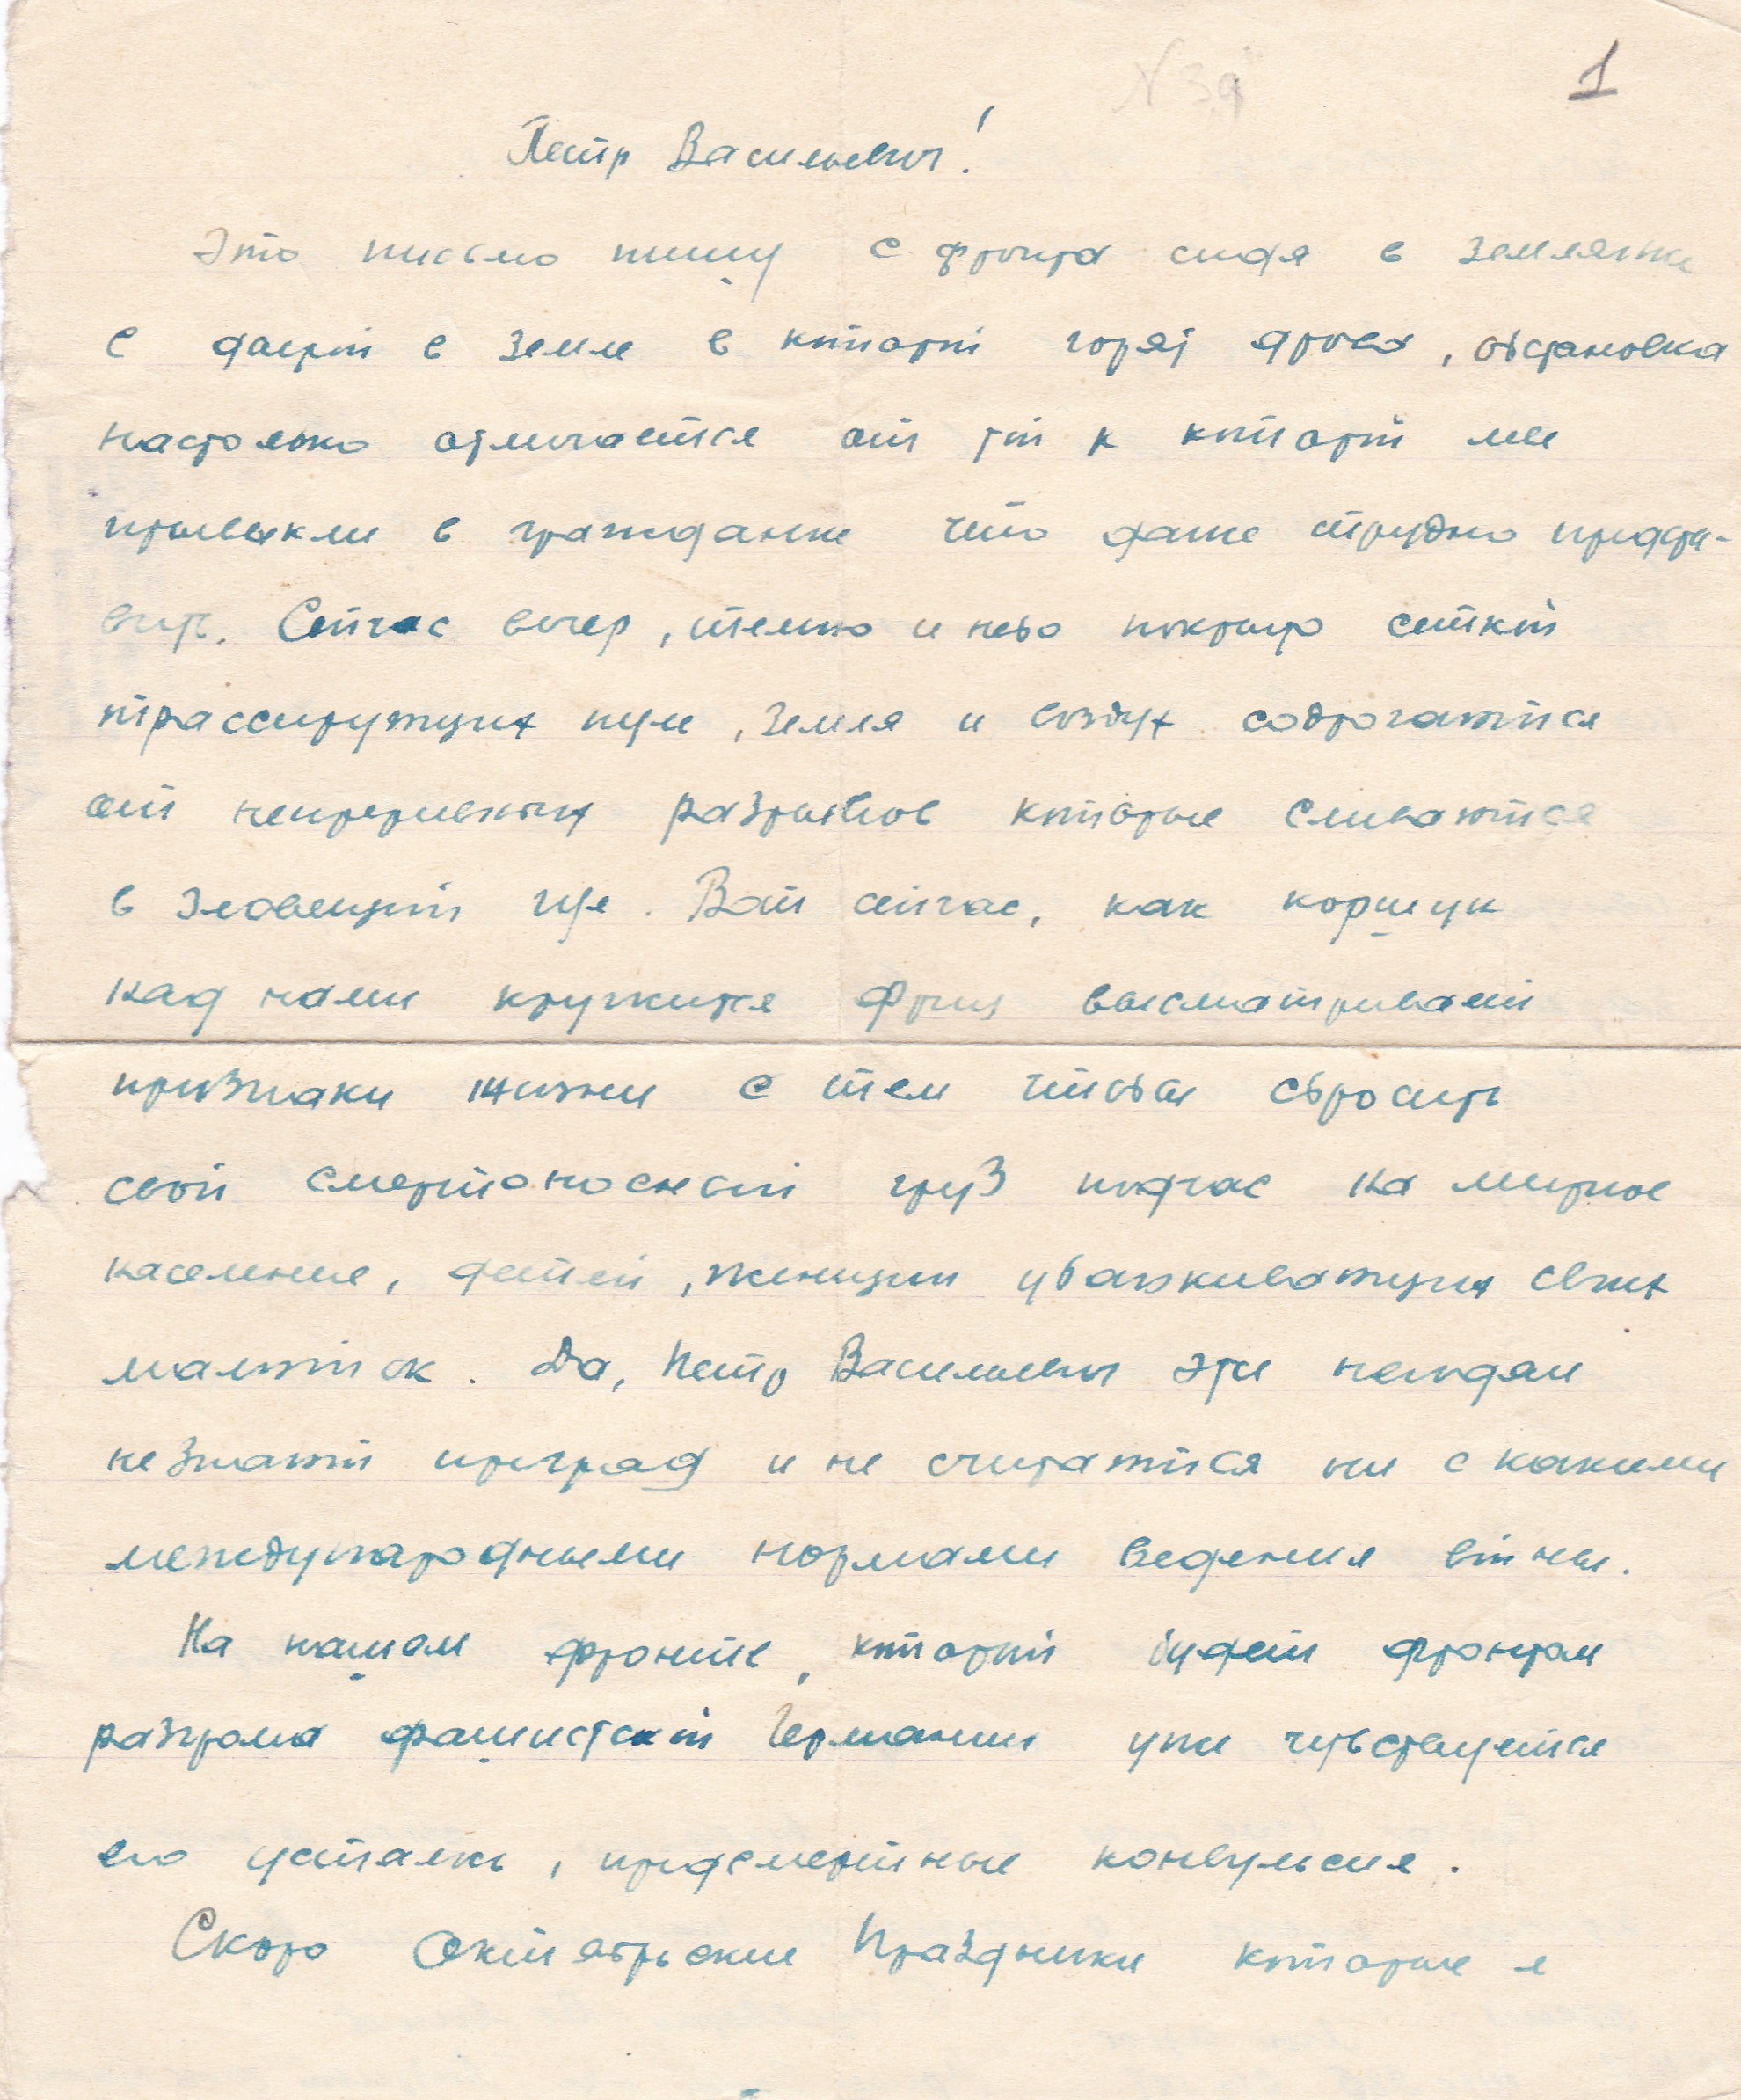 № 39
1
Петр Васильевич!
Это письмо пишу с фронта сидя в землянке
с дырой в земле в которой горят дрова, обстановка
настолько отличается от той к которой мы
привыкли в гражданке что даже трудно предста-
вить. Сейчас вечер, темно и небо покрыто сеткой
трассирующих пуль, земля и воздух содрогаются
от непрерывных разрывов которые сливаются
в зловещий гул. Вот сейчас, как коршун
над нами кружится фриц высматривает
признаки жизни с тем чтобы сбросить
свой смертоносный груз подчас на мирное
население, детей, женщин убаюкивающих своих
малюток. Да, Петр Васильевич эти нелюди
не знают преград и не считаются ни с какими
международными нормами ведения войны.
На нашем фронте, который будет фронтом
разгрома фашисткой Германии уже чувствуется
его усталость, предсмертные конвульсие.
Скоро Октябрьские праздники которые я